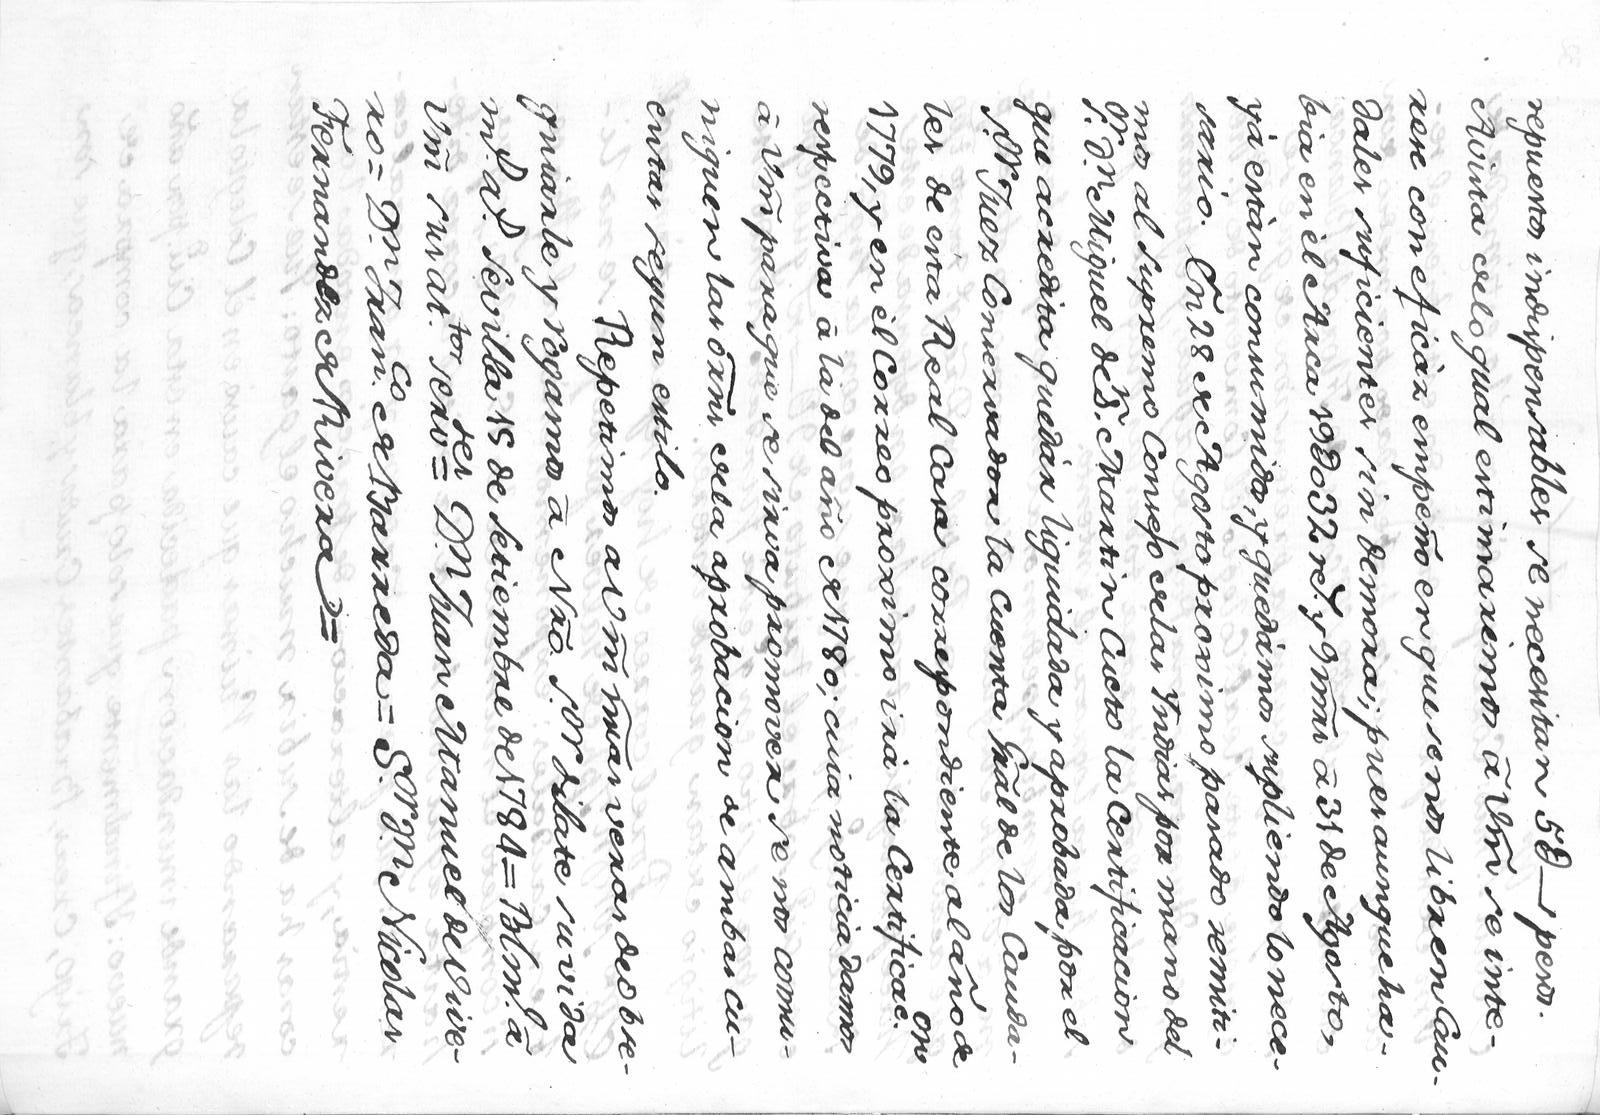 repuestos indispensables se necesitan 5U— pesos.
A vista de lo qual estimaremos à Vm̃ se inte-
rese con eficáz empeño en que se nos libren Cau-
dales suficientes sin demora; pues aunque ha-
bia en el Arca 19U032 r.s y 9 mrs à 31 de Agosto,
yá están consumidos, y quedamos supliendo lo nece-
sario. En 28 de Agosto proximo pasado remiti-
mos al supremo Consejo de las Yndias por mano del
S.r D.n Miguel de S.n Martin Cueto la Certificacion
que acredita quedár liquidada y aprobada por el
S.or Juez Conservador la cuenta Gral de los Cauda-
les de esta Real Casa correspondiente al año de
1779, y en el Correo proximo irá la Certificac.on
respectiva à la del año de 1780; cuia noticia damos
à Vm̃ para que se sirva promover se nos comu-
niquen las ôrns de la aprobacion de ambas cu-
entas segun estilo.
Repetimos a Vm̃ ñras veras de obse-
quiarle y rogamos à Nrõ. S.or dilate su vida
m.s a.s Sevilla 15 de Setiembre de 1784= Blm. à
Vm̃ sus at.tos serv.res= D.n Juan Manuel de Vive-
ro= D.n Fran.co de Barreda= S.or D.n Nicolas
Fernandez de Rivera=